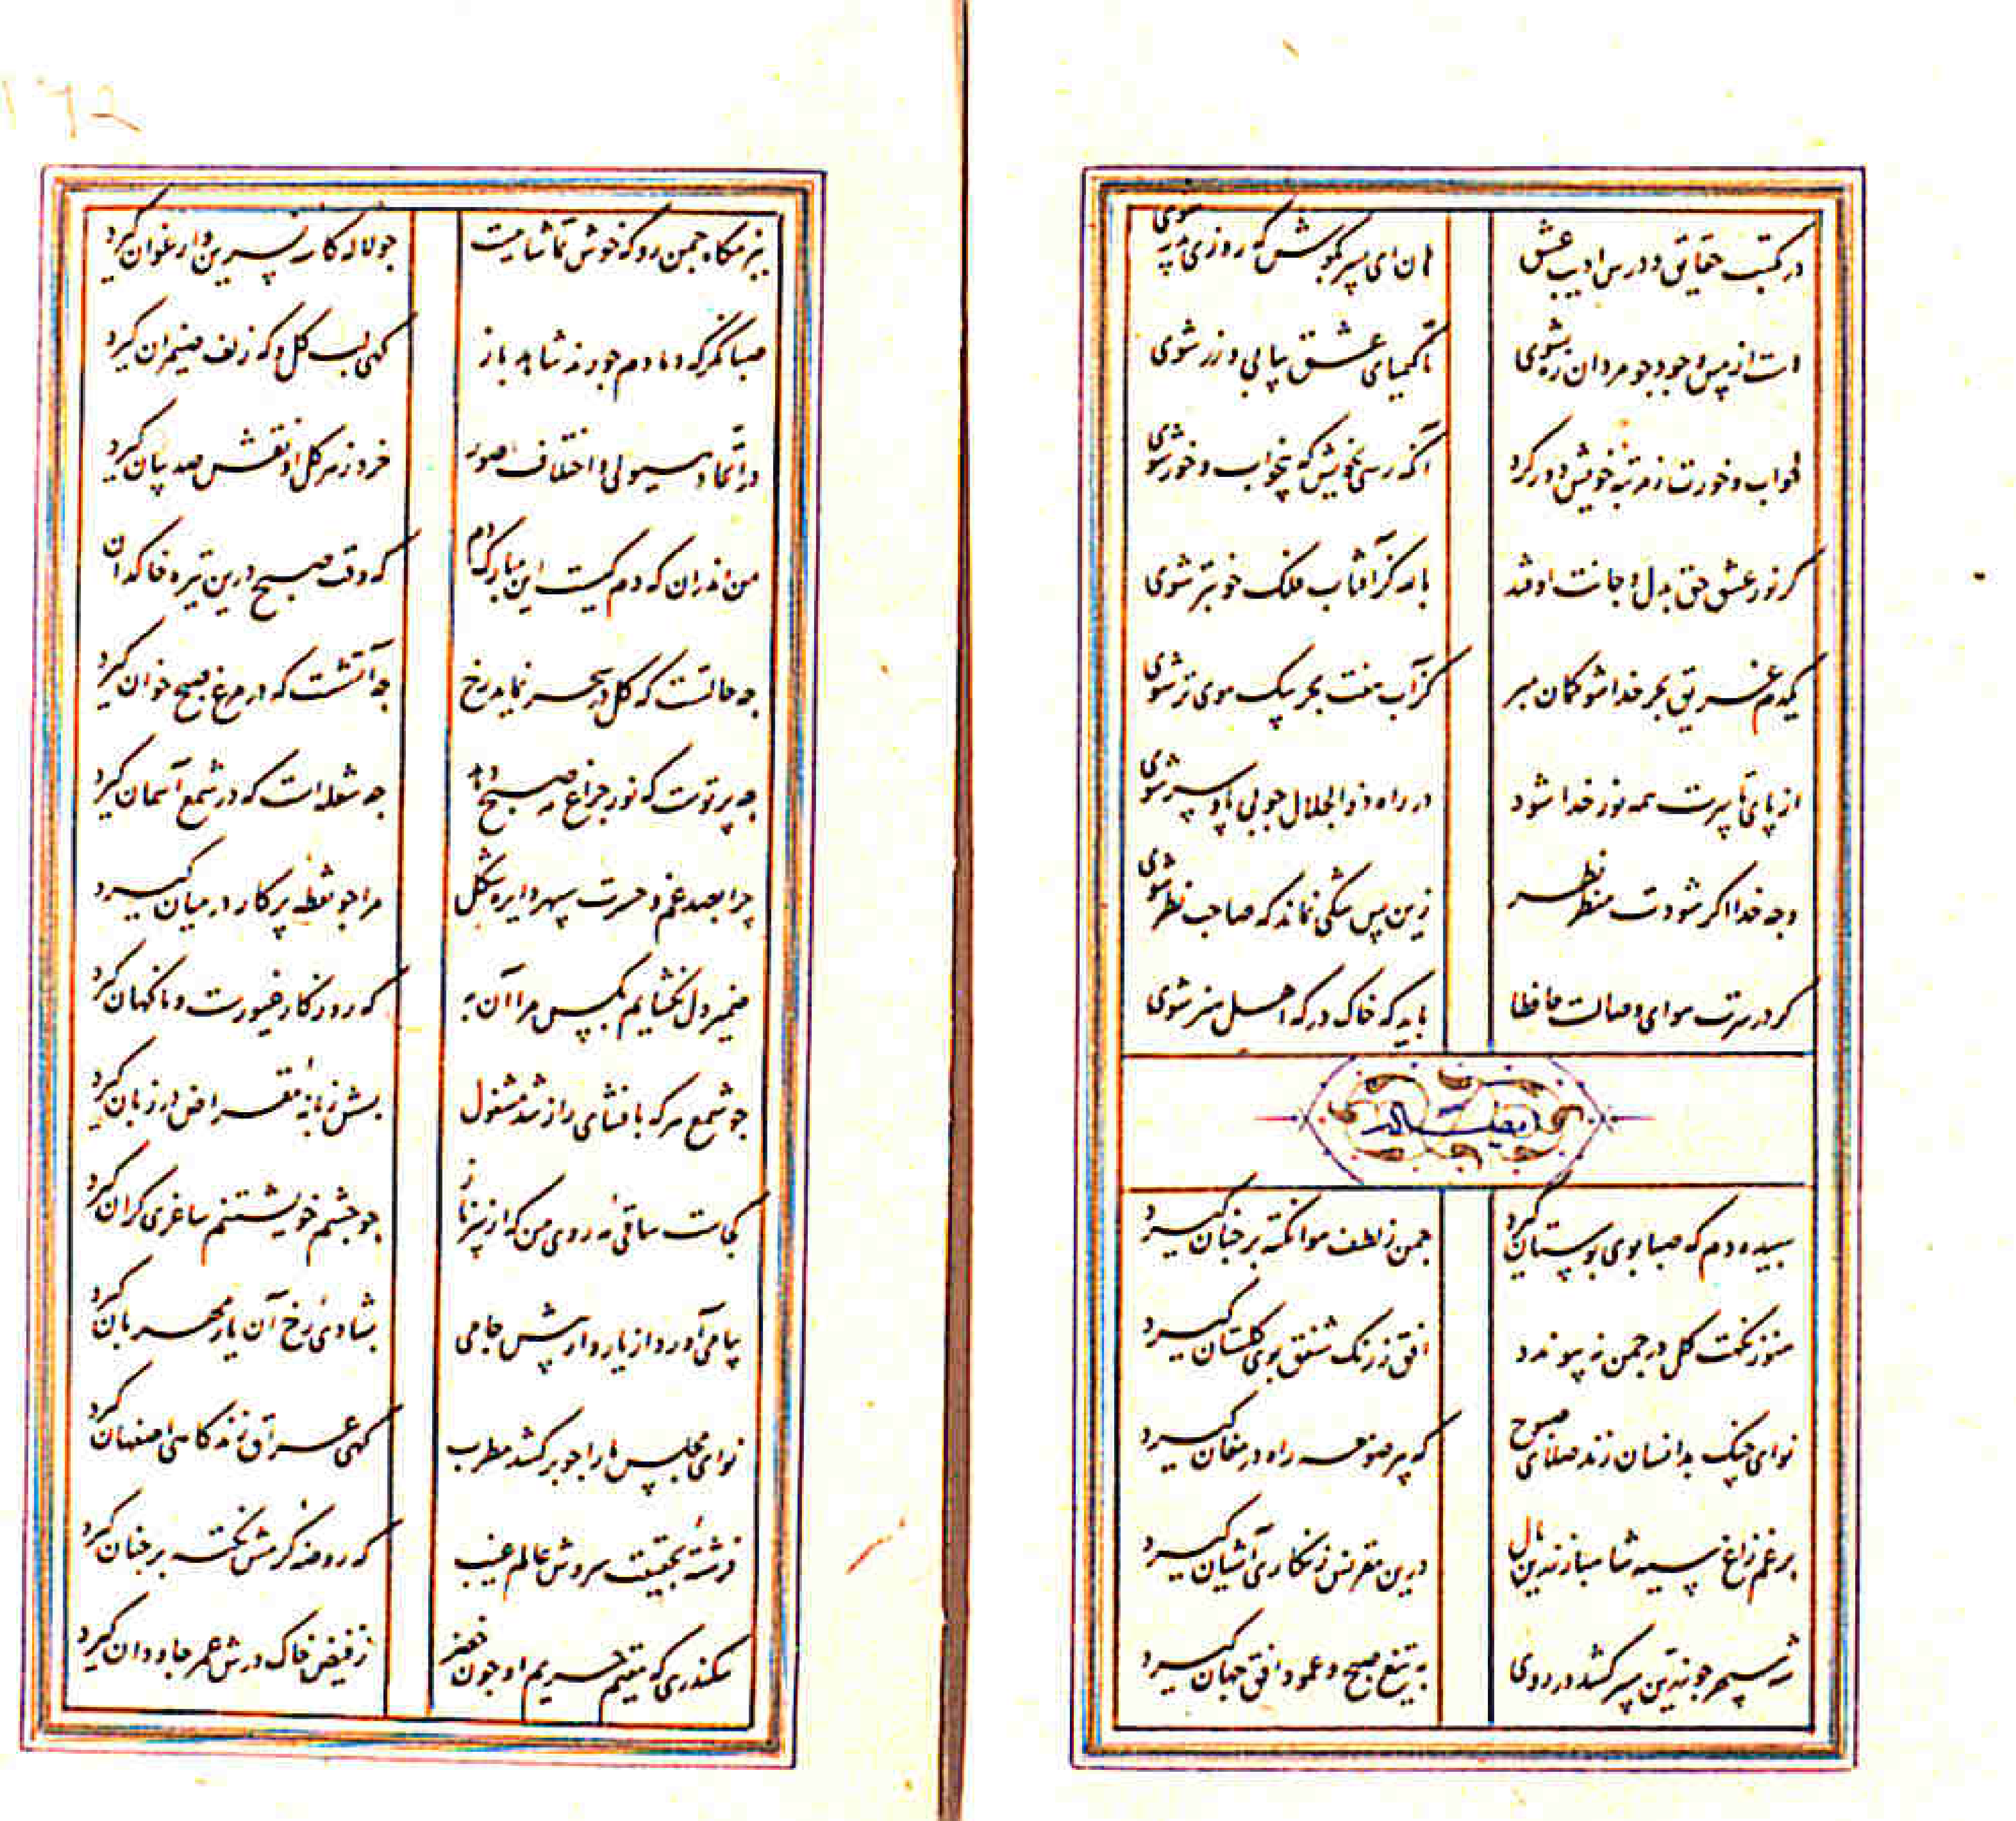 در مکتب حقایق و درس ادیب عشق هان ای پسر بکوش که روزی پدر شوی
دست از مس وجود چو مردان ره بشوی تا کیمیای عشق بیابی و زر شوی
خواب و خورت از مرتبه خویش دور کرد آنکه رسی بخویش که بیخواب و خور شوی
گر نور عشق حق بدل و جانت اوفتد بالله کز آفتاب فلک خوبتر شوی
یکدم غریق بحر خدا شو گمان مبر کز آب هفت بحر بیک موی تر شوی
از پای تا سرت همه نور خدا شود در راه ذوالجلال چو بی پا و سر شوی
وجه خدا اگر شودت منظر نظر زین پس شکی نماند که صاحب نظر شوی
گر در سرت هوای وصالست حافظا باید که خاک درگه اهل هنر شوی
سپیده دم که صبا بوی بوستان گیرد چمن ز لطف هوا نکته بر جنان گیرد
هنوز نکهت گل در چمن نه پیوندد افق ز رنگ شفق بوی گلستان گیرد
نوای چنگ بدانسان زند صلای صبوح که پیر صومعه راه در مغان گیرد
برغم زاغ سیه شاهباز زرین بال درین مقرنس زنگاری آشیان گیرد
شه سپهر چو زرین سپر کشد در روی به تیغ صبح و عمود افق جهان گیرد
ببزمگاه چمن رو که خوش تماشاییست چو لاله کاسه نسرین و ارغوان گیرد
صبا نگر که دمادم چو رند شاهد باز گهی لب گل و گه زلف ضیمران گیرد
در اتحاد هیولی و اختلاف صور خرد ز هر گل او نقش صد بیان گیرد
من اندران که دم کیست این مبارک دم که وقت صبح درین تیره خاکدان
چه حالتست که گل در سحر نماید رخ چه آتشست که در مرغ صبح خوان گیرد
چه پرتوست که نور چراغ صبح دهد چه شعله است که در شمع آسمان گیرد
چرا بصد غم و حسرت سپهر دایره شکل مرا چو نقطه پرکار در میان گیرد
ضمیر دل نگشایم بکس مرا آن به که روزگار غیورست و ناگهان گیرد
چو شمع هر که بافشای راز شد مشغول بسش زبانه مقراض در زبان گیرد
کجاست ساقی مه روی من که از سر ناز چو چشم خویشتنم ساغری گران گیرد
پیامی آورد از یار و از پیش جامی بشادی رخ آن یار مهربان گیرد
نوای مجلس ما را چو برکشد مطرب گهی عراق زند گاهی اصفهان گیرد
فرشته بحقیقت سروش عالم غیب که روضه کرمش نکته بر جنان گیرد
سکندری که مقیم حریم او چون خضر ز فیض خاک درش عمر جاودان گیرد